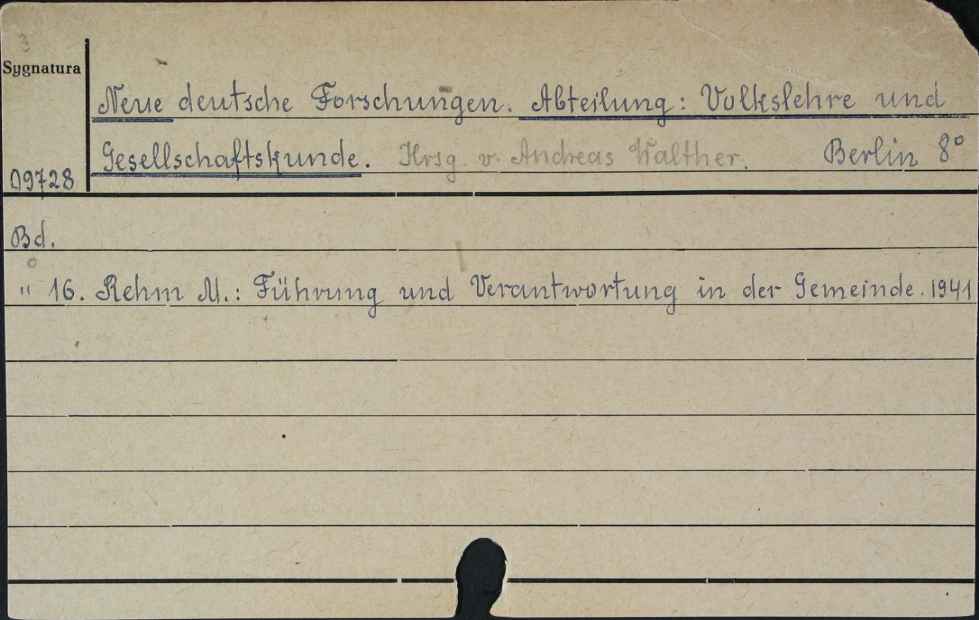 Sygnatura
Neue deutsche Forschungen. Abteilung: Volkslehre und
Gesellschaftskunde. Hrsg. v. Andreas Walther. Berlin 8°
09728
Bd.
" 16. Rehm M.: Führung und Verantwortung in der Gemeinde. 1941